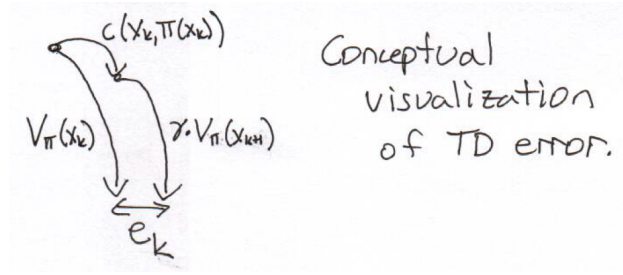 c(xₖ,π(xₖ))
Vπ(xₖ)
γ·Vπ(xₖ₊₁)
eₖ
Conceptual
visualization
of TD error.